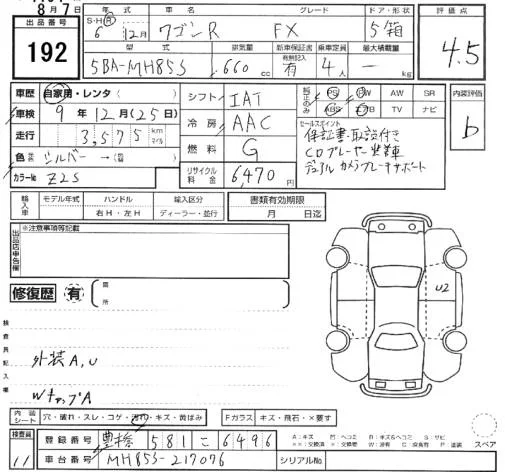 8月7日
出品番号
192
年式 車名 グレード ドア・形状
S・H・R
6年12月 ワゴンR FX 5箱
型式 排気量 新車保証書 乗車定員 最大積載量
有無記入
5BA-MH85S 660cc 有 4人 ― kg
評価点
4.5
車歴 自家用・レンタ
車検 9年12月(25日)
走行 3,575 km マイル
色 シルバー→(
カラーNo Z2S
シフト IAT
冷房 AAC
燃料 G
リサイクル料金 6,470円
純正のみ PS PW AW SR
ABS エアB TV ナビ
セールスポイント
保証書・取説付き
CDプレーヤー
デュアルカメラブレーキサポート
内装評価
b
輸入車 モデル年式 ハンドル 輸入区分
年 右H・左H ディーラー・並行
書類有効期限
月 日迄
出品店申告欄
※注意事項等記載
修復歴 有
箇所
検査員記入欄
外装A,U
U2
内装シート 穴・破れ・スレ・コゲ・汚れ・キズ・黄ばみ
Fガラス キズ・飛石・×要す
検査員
11
登録番号 豊橋 581 こ 6496
車台番号 MH85S-217076
シリアルNo
A:キズ U:ヘコミ B:キズ&ヘコミ S:サビ
スペア